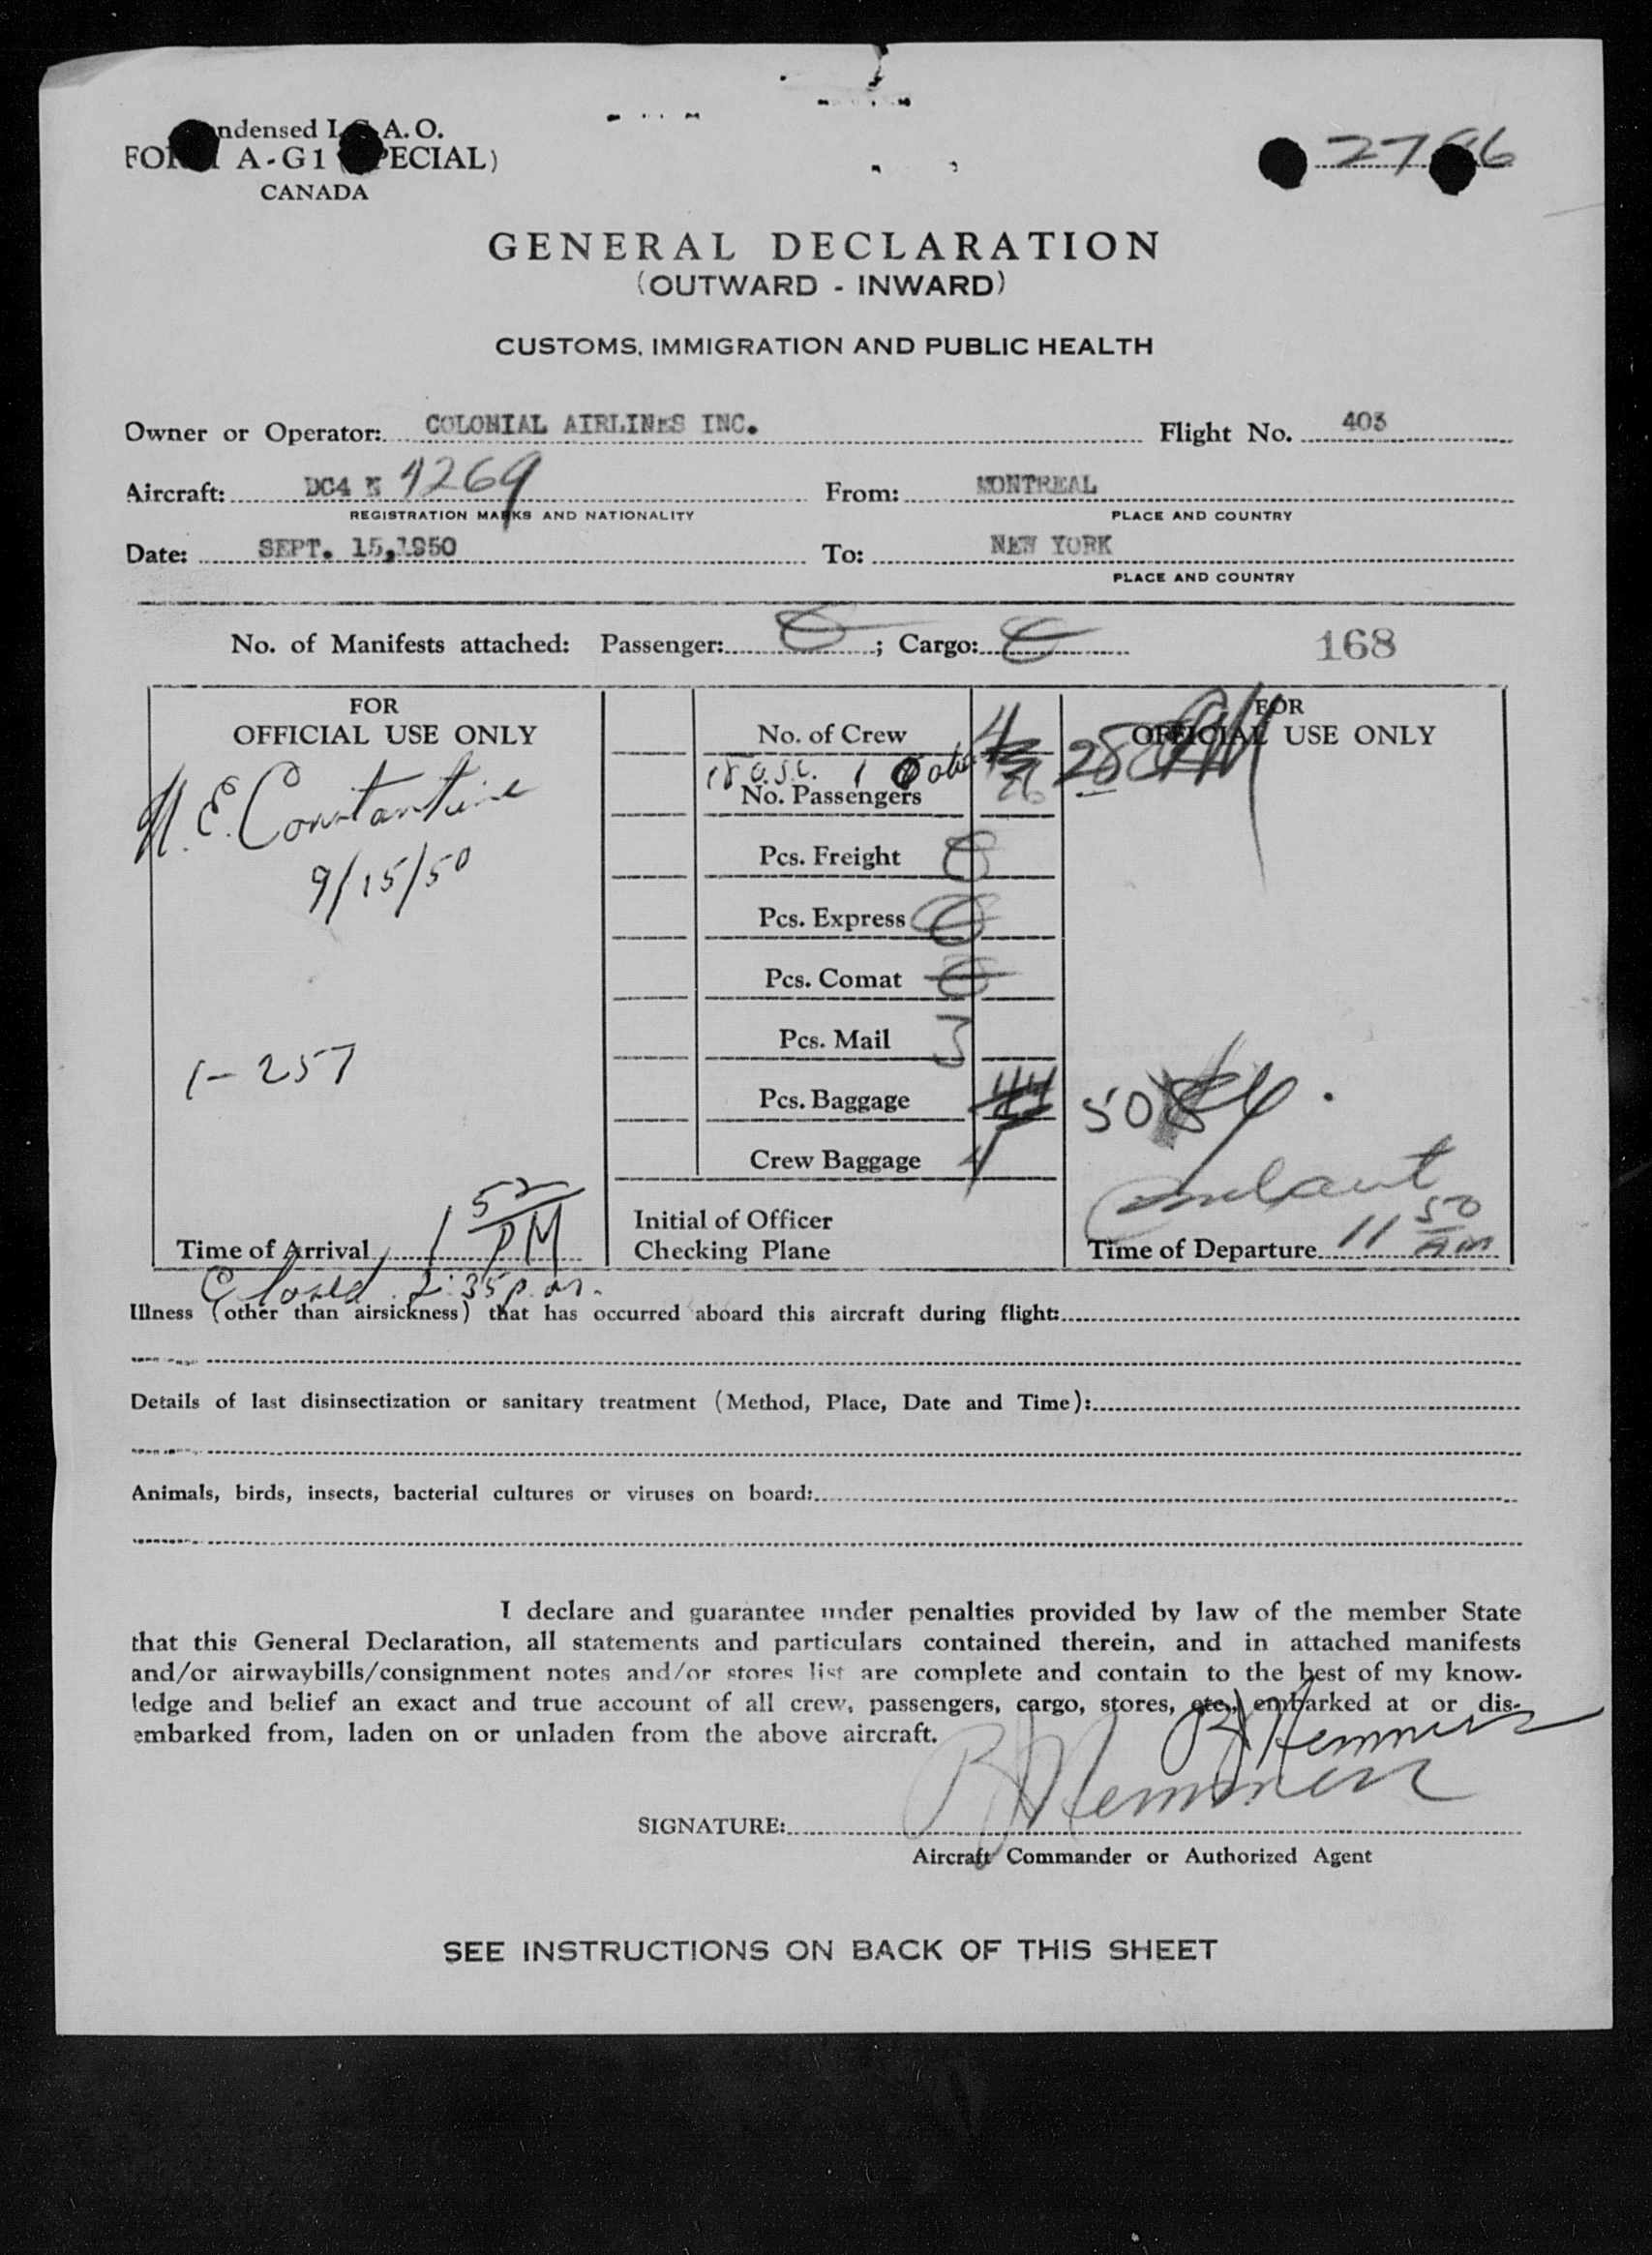 ndensed I. A. O.
A-G1 ECIAL)
CANADA
GENERAL DECLARATION
(OUTWARD - INWARD)
CUSTOMS, IMMIGRATION AND PUBLIC HEALTH
Owner or Operator: COLONIAL AIRLINES INC. Flight No. 403
Aircraft: DC4 N 4269 From: MONTREAL
REGISTRATION MARKS AND NATIONALITY PLACE AND COUNTRY
Date: SEPT. 15,1950 To: NEW YORK
PLACE AND COUNTRY
No. of Manifests attached: Passenger: 0; Cargo: 0 168
FOR
OFFICIAL USE ONLY
N. E. Constantine
9/15/50
1-257
Time of Arrival 1 52 PM
Closed 2:35 p.m.
No. of Crew 4
18 U.S.C. 1
No. Passengers 26
Pcs. Freight 0
Pcs. Express 0
Pcs. Comat 0
Pcs. Mail 3
Pcs. Baggage 44
Crew Baggage 4
Initial of Officer
Checking Plane
FOR
OFFICIAL USE ONLY
28
50
Time of Departure 11 50 AM
Illness (other than airsickness) that has occurred aboard this aircraft during flight:
Details of last disinsectization or sanitary treatment (Method, Place, Date and Time):
Animals, birds, insects, bacterial cultures or viruses on board:
I declare and guarantee under penalties provided by law of the member State
that this General Declaration, all statements and particulars contained therein, and in attached manifests
and/or airwaybills/consignment notes and/or stores list are complete and contain to the best of my know-
ledge and belief an exact and true account of all crew, passengers, cargo, stores, etc., embarked at or dis-
embarked from, laden on or unladen from the above aircraft.
SIGNATURE:
Aircraft Commander or Authorized Agent
SEE INSTRUCTIONS ON BACK OF THIS SHEET